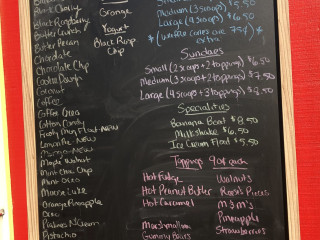 Black Raspberry
Butter Crunch
Butter Pecan
Chocolate
Chocolate Chip
Cookie Dough
Coconut
Coffee
Coffee Oreo
Cotton Candy
Lemon Pie NEW
Mango NEW
Maple Walnut
Mint Choc Chip
Mint Oreo
Moose Lake
Orange Pineapple
Oreo
Pistachio
Orange
Yogurt
Black Rasp
Chip
Medium (2 scoops) $5.50
Large (3 scoops) $6.50
* (Waffle cones are 75¢) *
extra
Sundaes
Small (2 scoops + 2 toppings) $6.50
Medium (3 scoops + 2 toppings) $7.50
Large (4 scoops + 3 toppings) $8.50
Specialties
Banana Boat $8.50
Milkshake $6.50
Ice Cream Float $5.50
Toppings 90¢ each
Hot Fudge
Hot Peanut Butter
Hot Caramel
Marshmallow
Gummy Bears
Reese's Pieces
M & M's
Pineapple
Strawberries